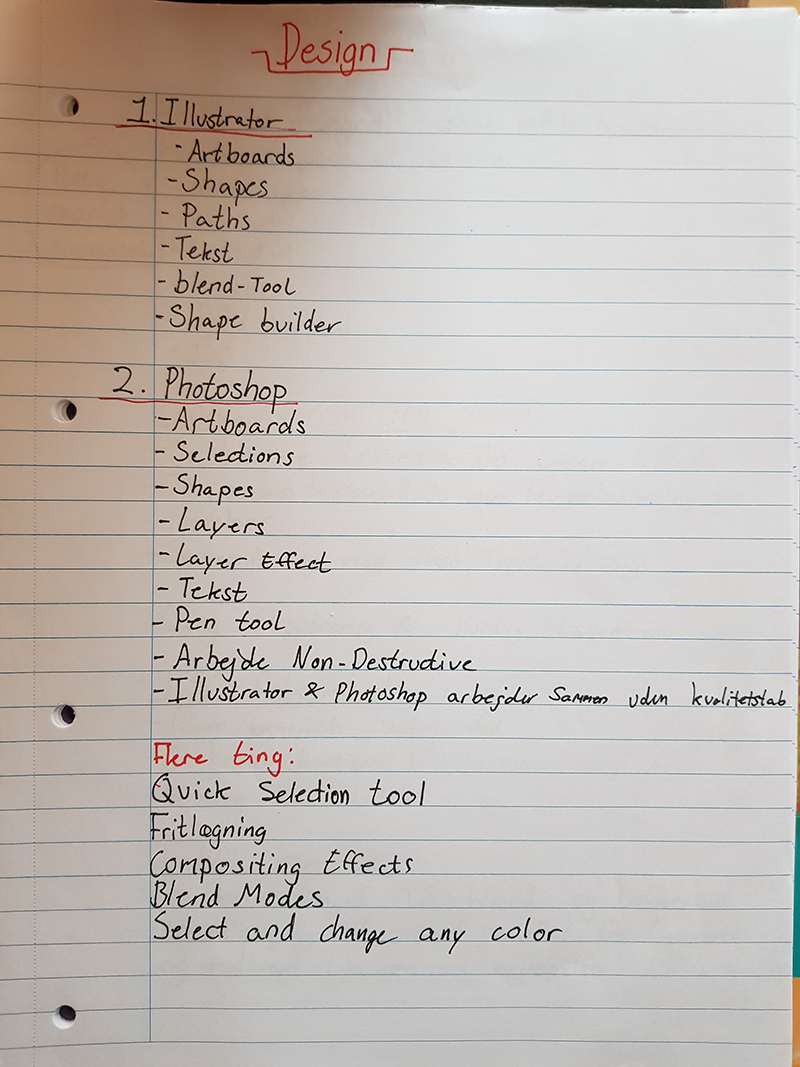 Design
1. Illustrator
- Artboards
- Shapes
- Paths
- Tekst
- blend-Tool
- Shape builder
2. Photoshop
- Artboards
- Selections
- Shapes
- Layers
- Layer Effect
- Tekst
- Pen tool
- Arbejde Non-Destructive
- Illustrator & Photoshop arbejder Sammen uden kvalitetstab
Flere ting:
Quick Selection tool
Fritlægning
Compositing Effects
Blend Modes
Select and change any color